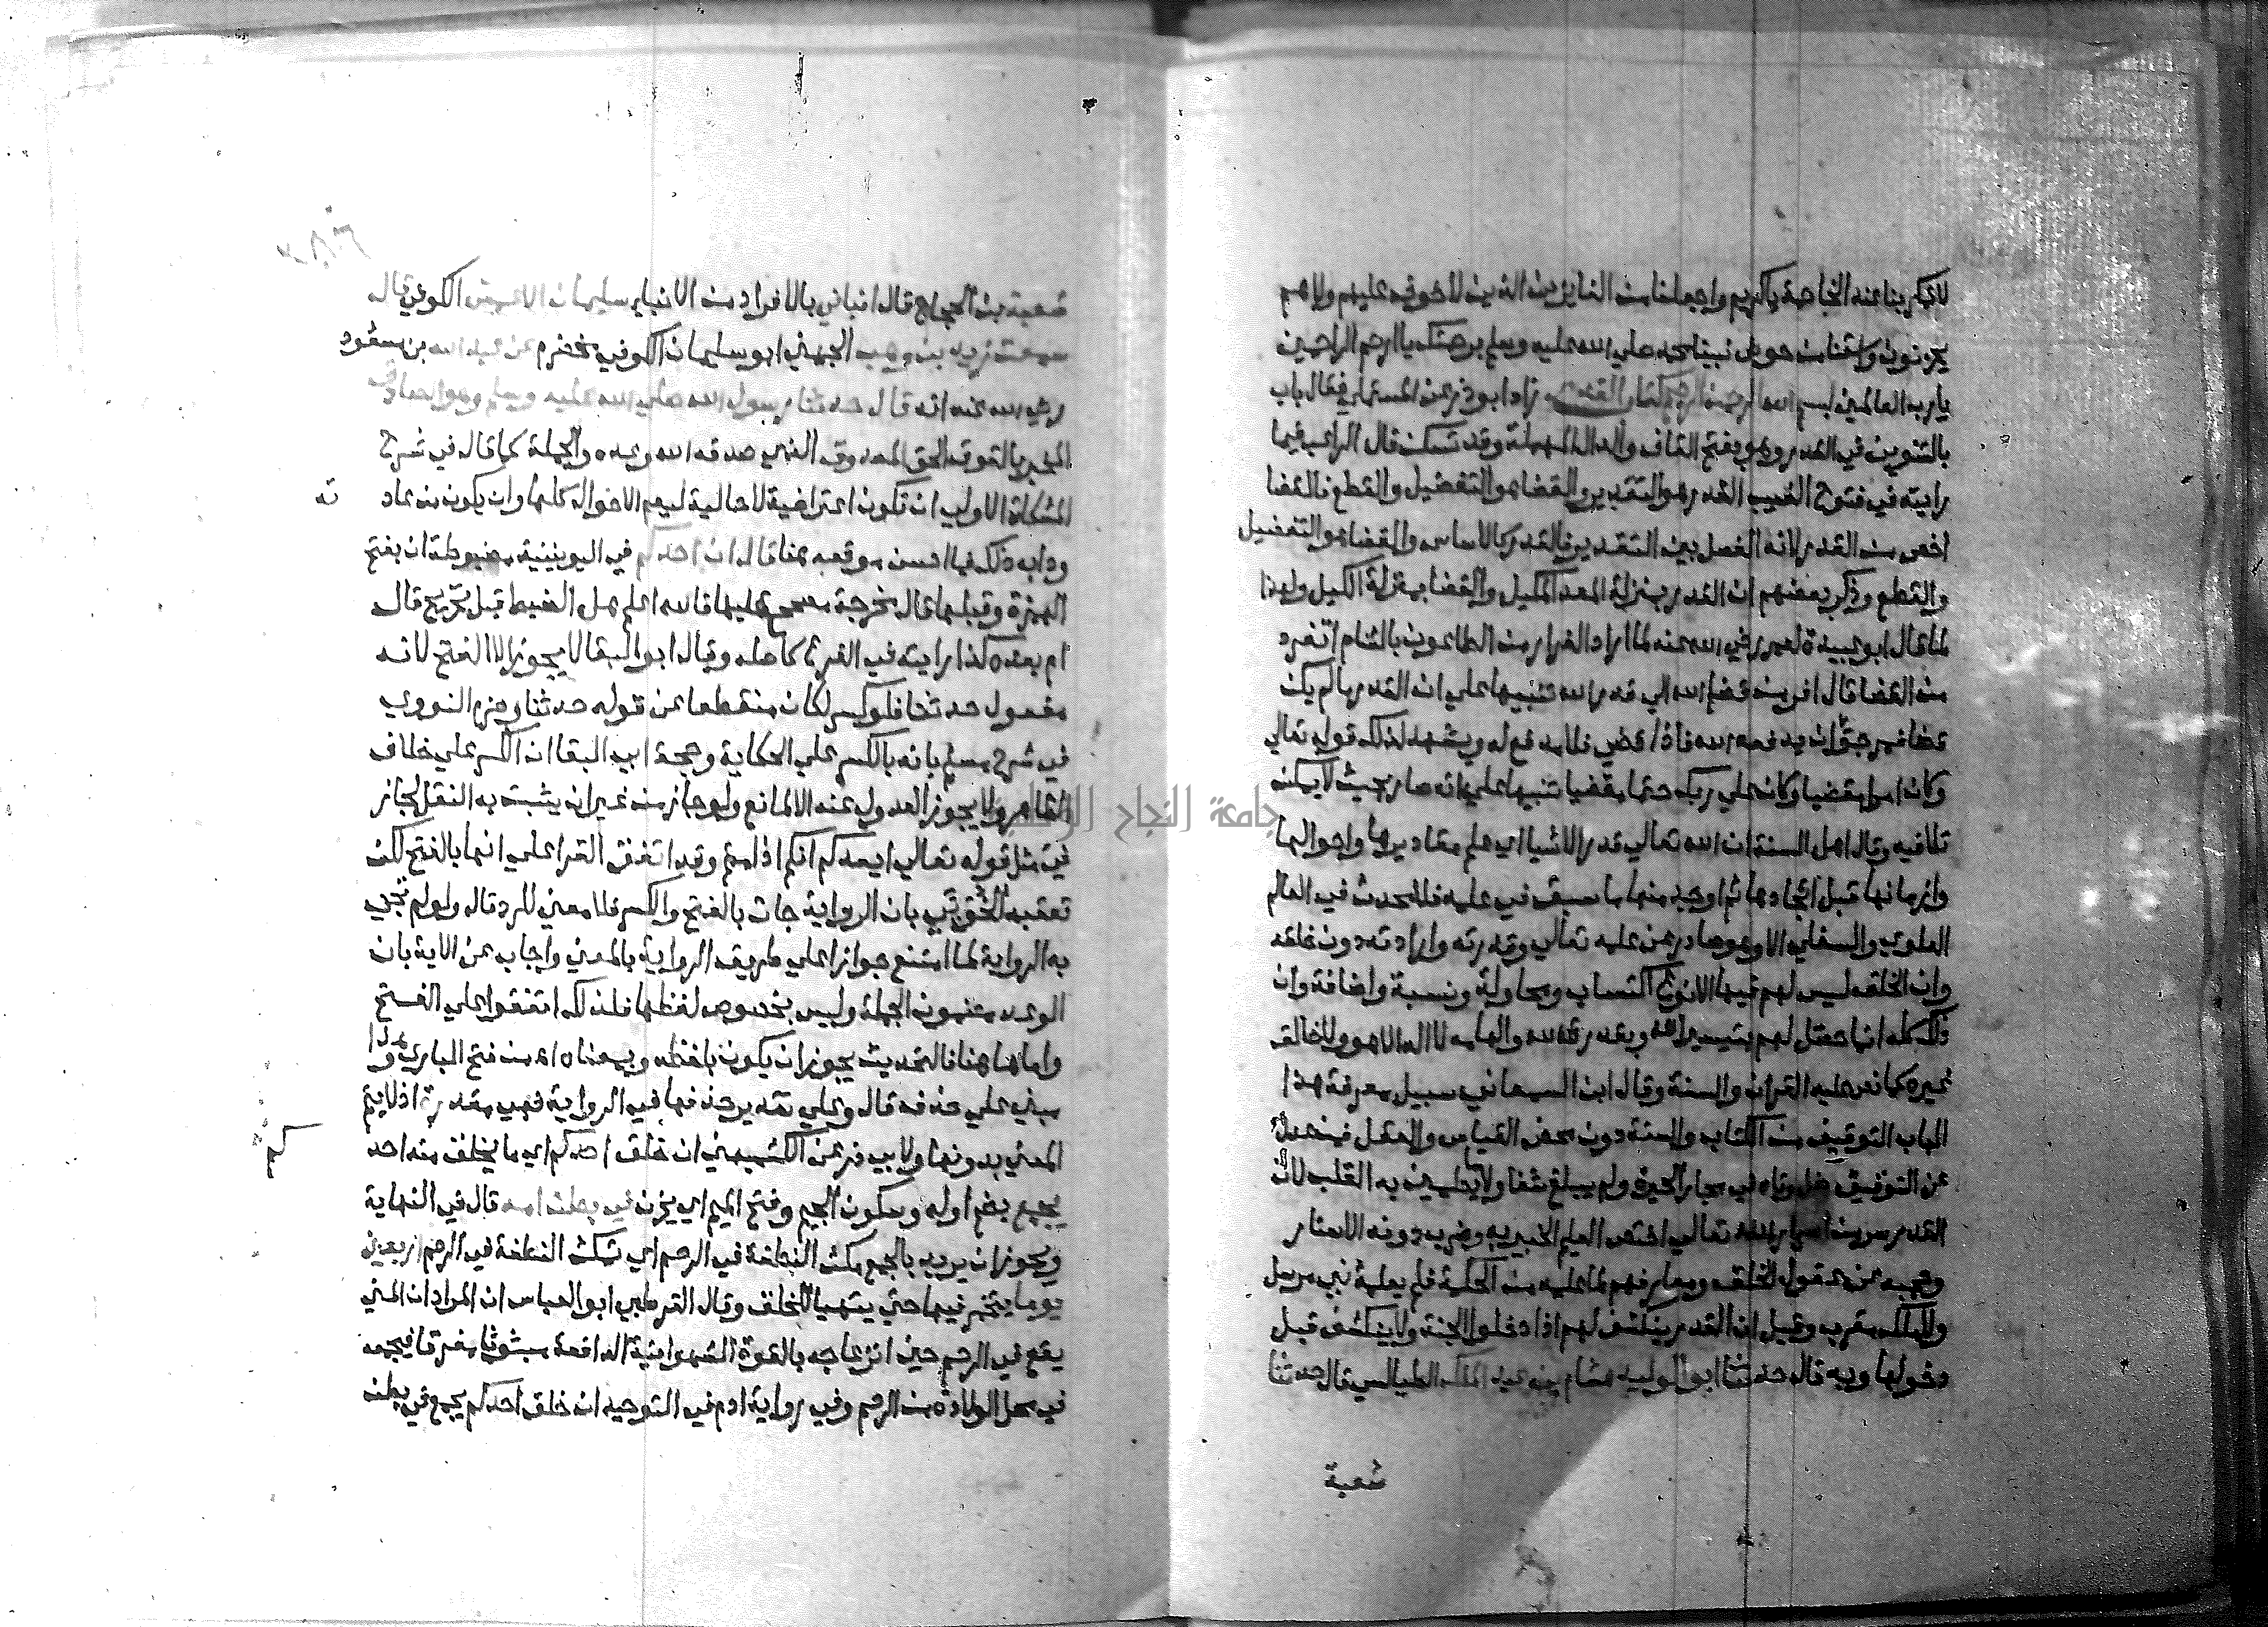 لا تمكر بنا عند الخاتمة ياكريم واجعلنا من الفايزين الذين لا خوف عليهم ولا هم
يحزنون واسقنا من حوض نبينا محمد صلي الله عليه وسلم برحمتك يا ارحم الراحمين
يا رب العالمين بسم الله الرحمن الرحيم كتاب القدر زاد ابو ذر عن المستملي فقال باب
بالتنوين في القدر وهو بفتح القاف والدال المهملة وقد تسكن قال الراغب فيما
رايته في فتوح الغيب القدر هو التقدير والقضا هو التفصيل والقطع فالقضا
اخص من القدر لانه الفصل بين التقدير فالقدر كالاساس والقضا هو التفصيل
والقطع وذكر بعضهم ان القدر بمنزلة المعد للكيل والقضا بمنزلة الكيل ولهذا
لما قال ابو عبيدة لعمر رضي الله عنه لما اراد الفرار من الطاعون بالشام اتفر
من القضا قال افر من قضا الله الي قدر الله تنبيها علي ان القدر ما لم يكن
قضا فمرجو ان يدفعه الله فاذا قضي فلا مدفع له ويشهد لذلك قوله تعالي
وكان امرا مقضيا وكان علي ربك حتما مقضيا تنبيها علي انه صار بحيث لا يمكن
تلافيه وقال اهل السنة ان الله تعالي قدر الاشيا اي علم مقاديرها واحوالها
وازمانها قبل ايجادها ثم اوجد منها ما سبق في علمه فلا محدث في العالم
العلوي والسفلي الا وهو صادر عن علمه تعالي وقدرته وارادته دون خلقه
وان الخلق ليس لهم فيها الا نوع اكتساب ومحاولة ونسبة واضافة وان
ذلك كله انما حصل لهم بتيسير الله وبقدرة الله والهامه لا اله الا هو ولا خالق
غيره كما نص عليه القران والسنة وقال ابن السمعاني سبيل معرفة هذا
الباب التوقيف من الكتاب والسنة دون محض القياس والعقل فمن عدل
عن التوقيف ضل وتاه في بحار الحيرة ولم يبلغ شفا ولا ما يطمين به القلب لان
القدر سر من اسرار الله تعالي اختص العليم الخبير به وضرب دونه الاستار
وحجبه عن عقول الخلق ومعارفهم لما علمه من الحكمة فلم يعلمه نبي مرسل
ولا ملك مقرب وقيل ان القدر ينكشف لهم اذا دخلوا الجنة ولا ينكشف قبل
دخولها وبه قال حدثنا ابو الوليد هشام بن عبد الملك الطيالسي قال حدثنا
شعبة
شعبة بن الحجاج قال انباني بالافراد من الانبا سليمان الاعمش الكوفي قال
سمعت زيد بن وهب الجهني ابو سليمان الكوفي مخضرم عن عبد الله بن مسعود
رضي الله عنه انه قال حدثنا رسول الله صلي الله عليه وسلم وهو الصادق
المخبر بالقول الحق المصدوق الذي صدقه الله وعده والجملة كما قال في شرح
المشكاة الاولي ان تكون اعتراضية لا حالية ليعم الاحوال كلها وان يكون من عاد
ته
ودابه ذلك فما احسن موقعه هنا قال ان احدكم في اليونينية مضبوطة ان بفتح
الهمزة وقبلها قال مخرجة مصحح عليها فالله اعلم هل الضبط قبل تخريج قال
ام بعده كذا رايته في الفرع كاصله وقال ابو البقا لا يجوز الا الفتح لانه
مفعول حدثنا فلو كسر لكان منقطعا عن قوله حدثنا وجزم النووي
في شرح مسلم بانه بالكسر علي الحكاية وحجة ابي البقا ان الكسر علي خلاف
الظاهر ولا يجوز العدول عنه الا لمانع ولو جاز من غير ان يثبت به النقل لجاز
في مثل قوله تعالي ايعدكم انكم اذا متم وقد اتفق القرا علي انها بالفتح لكن
تعقبه الخوبي بان الرواية جات بالفتح والكسر فلا معني للرد قال ولو لم تجي
به الرواية لما امتنع جوازا علي طريق الرواية بالمعني واجاب عن الاية بان
الوعد مضمون الجملة وليس بخصوص لفظها فلذلك اتفقوا علي الفتح
واما هاهنا فالتحديث يجوز ان يكون بلفظه وبمعناه اه من فتح الباري وهذا
مبني علي حذف قال وعلي تقدير حذفها في الرواية فهي مقدرة اذ لا يتم
المعني بدونها ولابي ذر عن الكشميهني ان خلق احدكم اي ما يخلق منه احد
كم
يجمع بضم اوله وسكون الجيم وفتح الميم اي يخزن في بطن امه قال في النهاية
ويجوز ان يريد بالجمع مكث النطفة في الرحم اي تمكث النطفة في الرحم اربعين
يوما يتخمر فيها حتي يتهيا للخلق وقال القرطبي ابو العباس ان المراد ان المني
يقع في الرحم حين انزعاجه بالقوة الشهوانية الدافعة مبثوثا متفرقا فيجمعه
في محل الولادة من الرحم وفي رواية ادم في التوحيد ان خلق احدكم يجمع في بطن
جامعة النجاح الوطنية